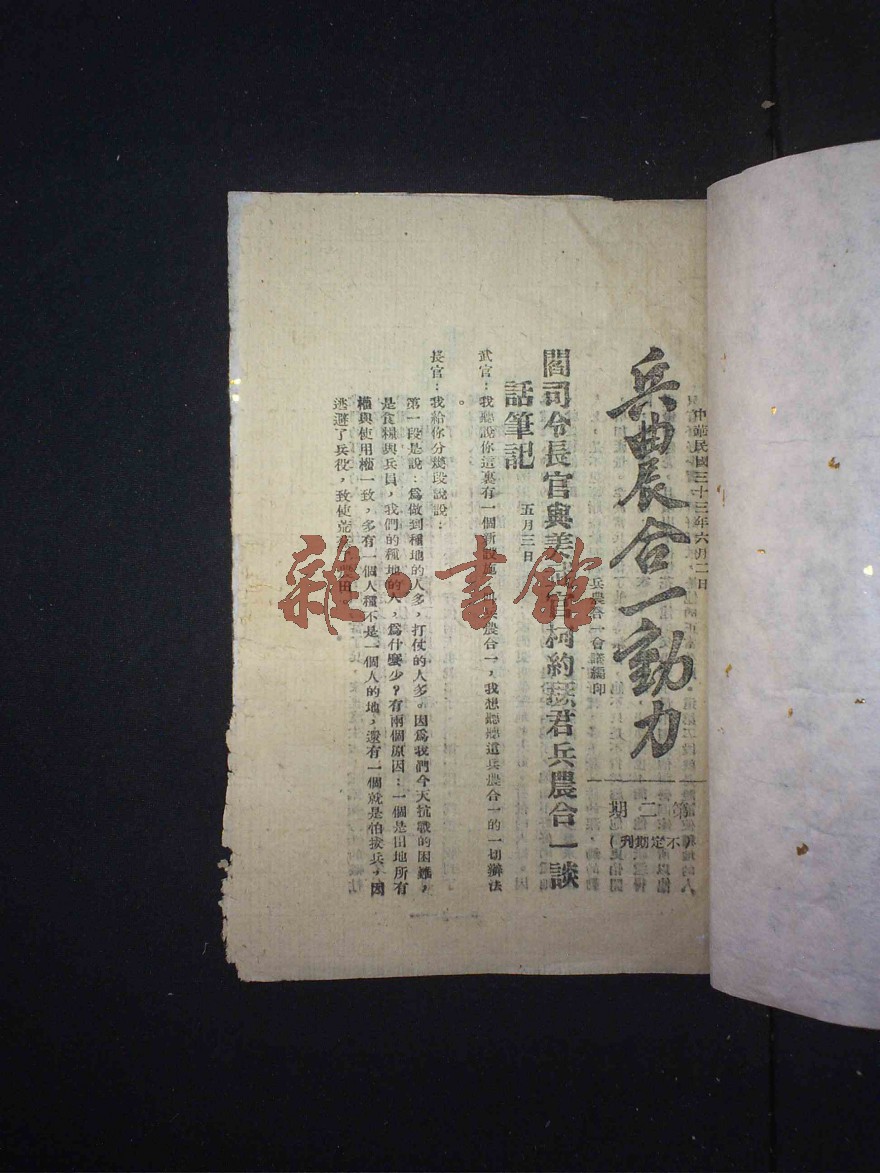 中華民國三十三年六月二日
兵農合一動力
第二期
(不定期刊)
兵農合一會議編印
閻司令長官與美武官柯約瑟君兵農合一談
話筆記
五月三日
武官：我聽說你這裏有一個新設施叫兵農合一，我想聽聽這兵農合一的一切辦法
。
長官：我給你分幾段說說：
第一段是說：為做到種地的人多，打仗的人多。因為我們今天抗戰的困難，
是食糧與兵員，我們的種地的人，為什麼少？有兩個原因：一個是田地所有
權與使用權一致，多有一個人種不是一個人的地，還有一個就是怕拔兵，因
逃避了兵役，致使荒了農田
雜·書館